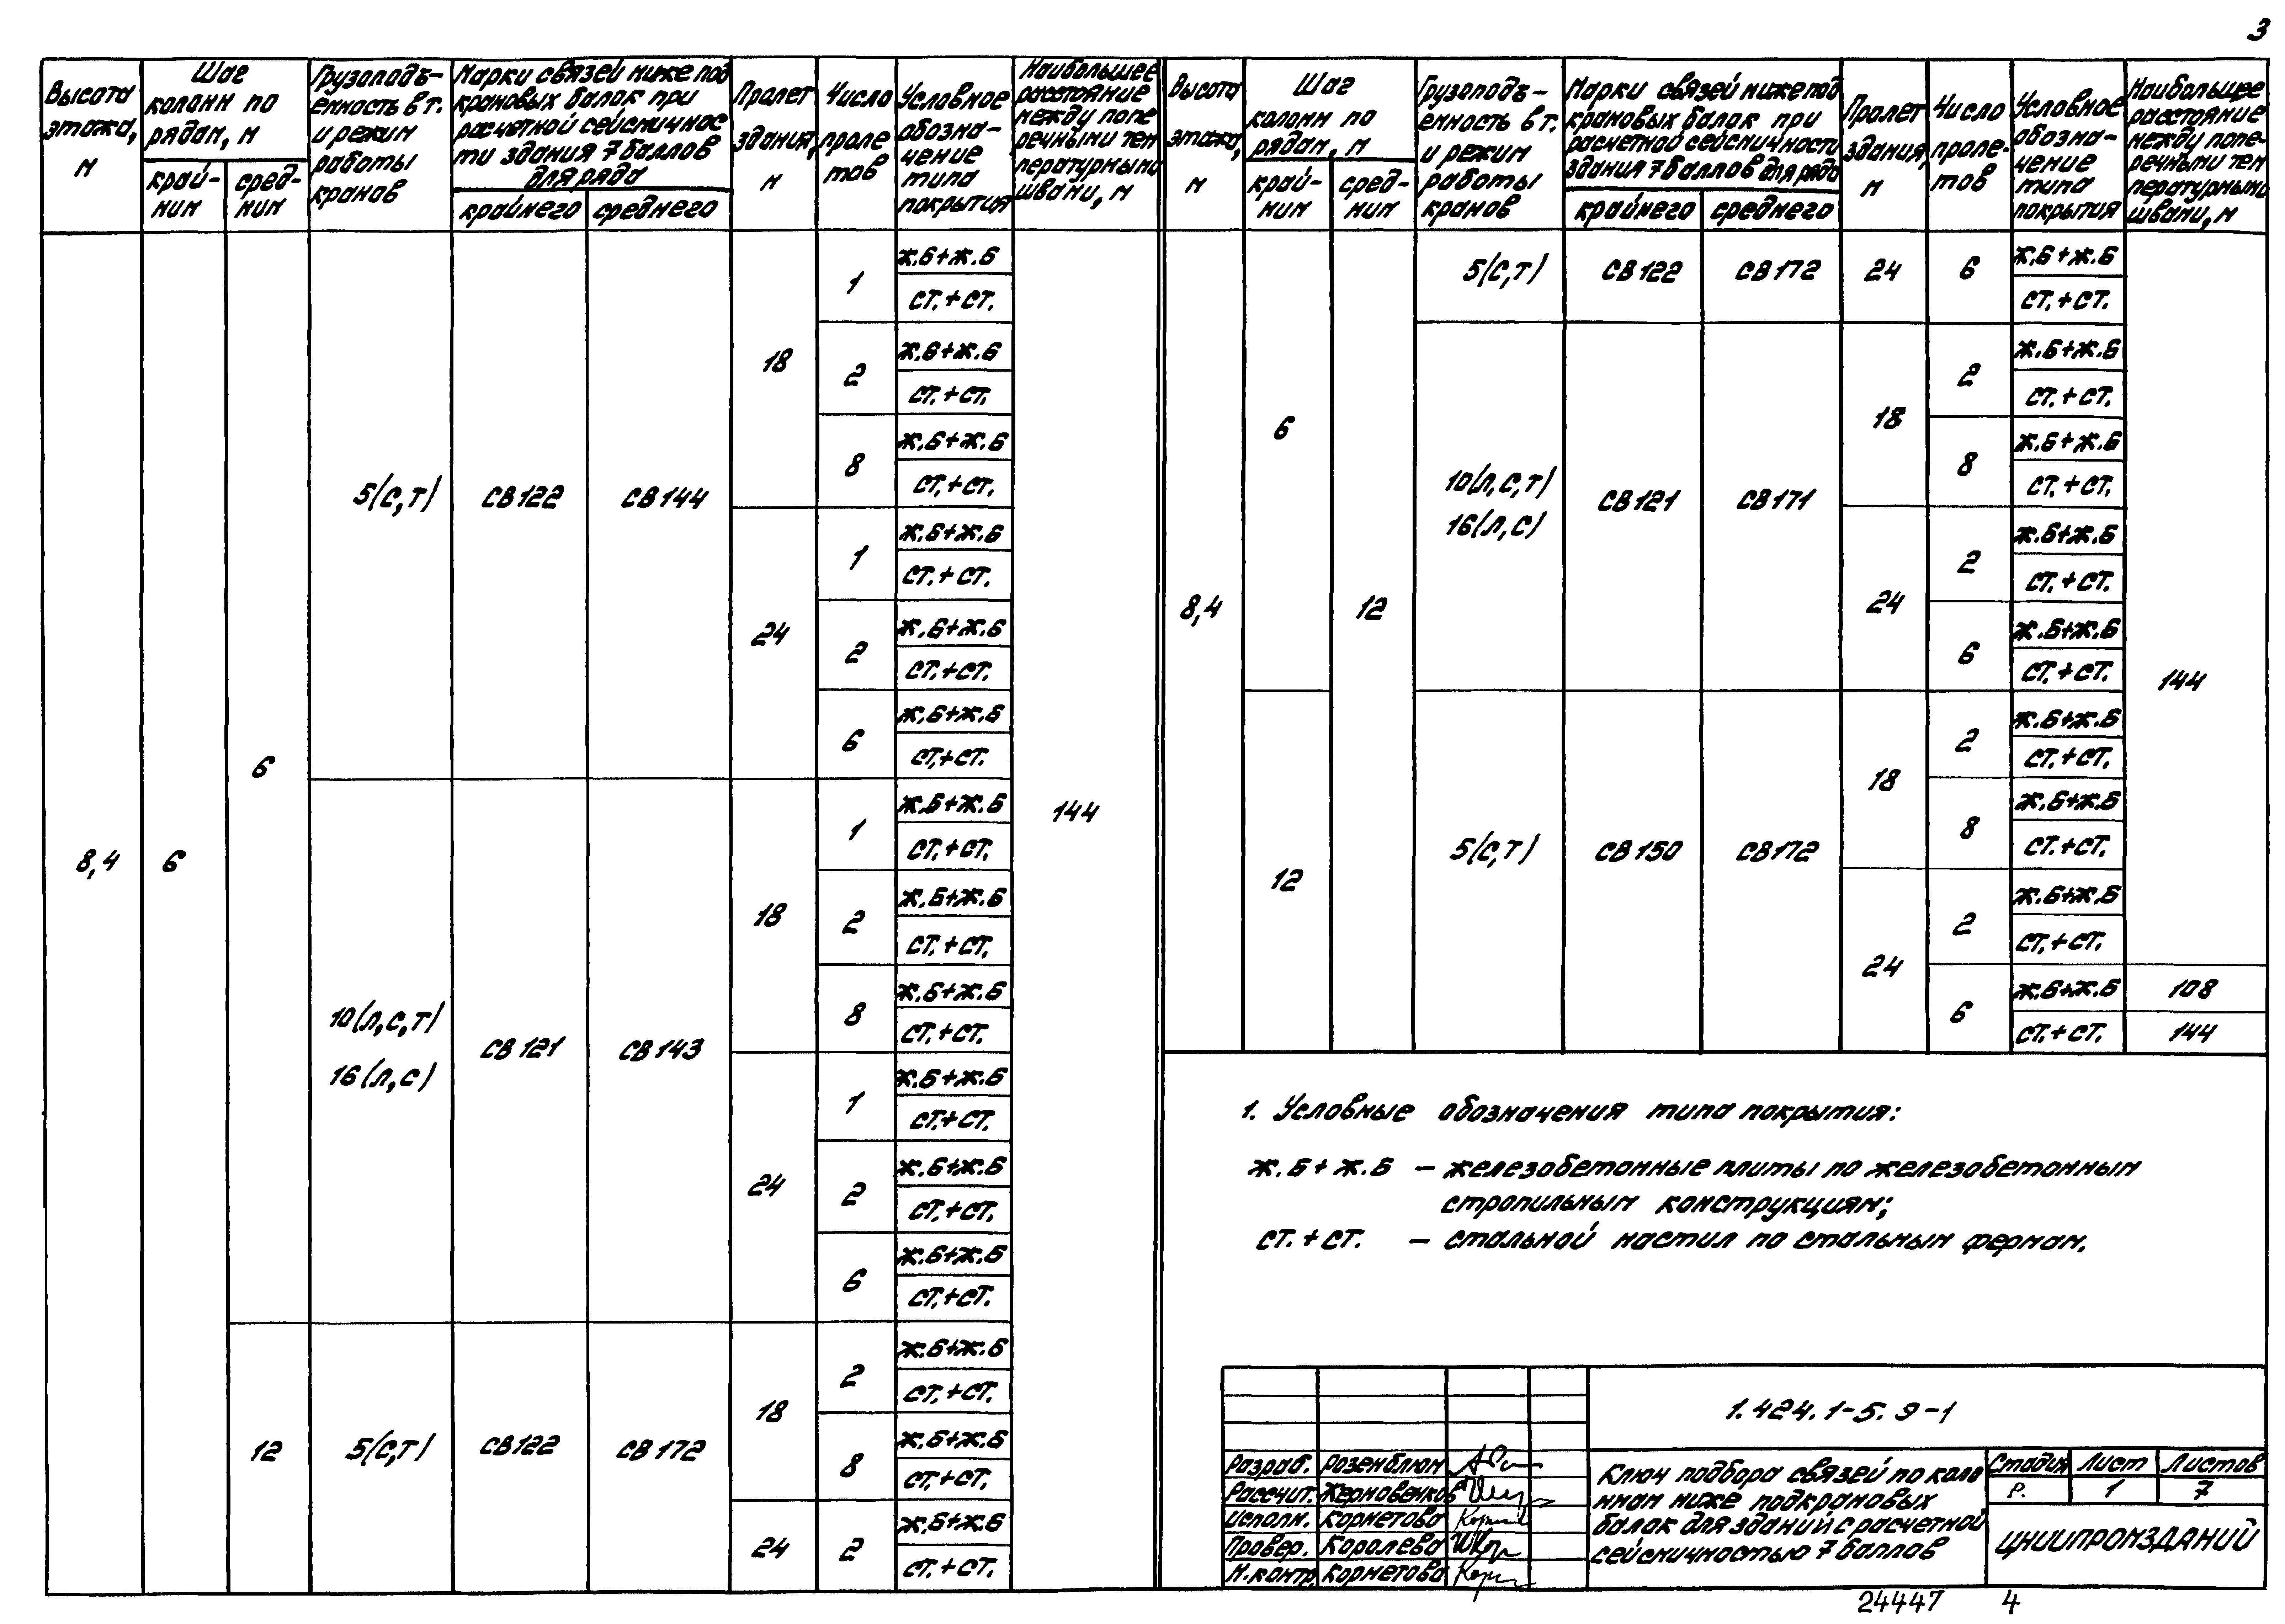 3
Высота
этажа,
м
Шаг
колонн по
рядам, м
край-
ним
сред-
ним
Грузоподъ-
емность в т.
и режим
работы
кранов
Марки связей ниже под
крановых балок при
расчетной сейсмичнос
ти здания 7 баллов
для ряда
крайнего
среднего
Пролет
здания,
м
Число
проле
тов
Условное
обозна-
чение
типа
покрытия
Наибольшее
расстояние
между попе
речными тем
пературными
швами, м
8,4
6
6
5(С,Т)
СВ122
СВ144
18
1
Ж.Б+Ж.Б
СТ.+СТ.
2
Ж.Б+Ж.Б
СТ.+СТ.
8
Ж.Б+Ж.Б
СТ.+СТ.
24
1
Ж.Б+Ж.Б
СТ.+СТ.
2
Ж.Б+Ж.Б
СТ.+СТ.
6
Ж.Б+Ж.Б
СТ.+СТ.
144
10(Л,С,Т)
16(Л,С)
СВ121
СВ143
18
1
Ж.Б+Ж.Б
СТ.+СТ.
2
Ж.Б+Ж.Б
СТ.+СТ.
8
Ж.Б+Ж.Б
СТ.+СТ.
24
1
Ж.Б+Ж.Б
СТ.+СТ.
2
Ж.Б+Ж.Б
СТ.+СТ.
6
Ж.Б+Ж.Б
СТ.+СТ.
12
5(С,Т)
СВ122
СВ172
18
2
Ж.Б+Ж.Б
СТ.+СТ.
8
Ж.Б+Ж.Б
СТ.+СТ.
24
2
Ж.Б+Ж.Б
СТ.+СТ.
Высота
этажа,
м
Шаг
колонн по
рядам, м
край-
ним
сред-
ним
Грузоподъ-
емность в т.
и режим
работы
кранов
Марки связей ниже под
крановых балок при
расчетной сейсмичности
здания 7 баллов для ряда
крайнего
среднего
Пролет
здания,
м
Число
проле-
тов
Условное
обозна-
чение
типа
покрытия
Наибольшее
расстояние
между попе-
речными тем
пературными
швами, м
8,4
6
12
5(С,Т)
СВ122
СВ172
24
6
Ж.Б+Ж.Б
СТ.+СТ.
10(Л,С,Т)
16(Л,С)
СВ121
СВ171
18
2
Ж.Б+Ж.Б
СТ.+СТ.
8
Ж.Б+Ж.Б
СТ.+СТ.
24
2
Ж.Б+Ж.Б
СТ.+СТ.
6
Ж.Б+Ж.Б
СТ.+СТ.
144
12
5(С,Т)
СВ150
СВ172
18
2
Ж.Б+Ж.Б
СТ.+СТ.
8
Ж.Б+Ж.Б
СТ.+СТ.
24
2
Ж.Б+Ж.Б
СТ.+СТ.
6
Ж.Б+Ж.Б
108
СТ.+СТ.
144
1. Условные обозначения типа покрытия:
Ж.Б+Ж.Б – железобетонные плиты по железобетонным
стропильным конструкциям;
СТ.+СТ. – стальной настил по стальным фермам.
1.424.1-5.9-1
Разраб. Розенблюм
Рассчит. Жерновенков
Исполн. Корметова
Провер. Королева
Н.контр. Корметова
Ключ подбора связей по коло
ннам ниже подкрановых
балок для зданий с расчетной
сейсмичностью 7 баллов
Стадия Лист Листов
Р. 1 7
ЦНИИПРОМЗДАНИЙ
24447 4